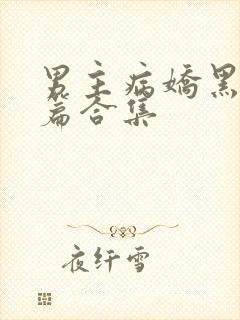 男主病娇黑
篇合集
夜纤雪